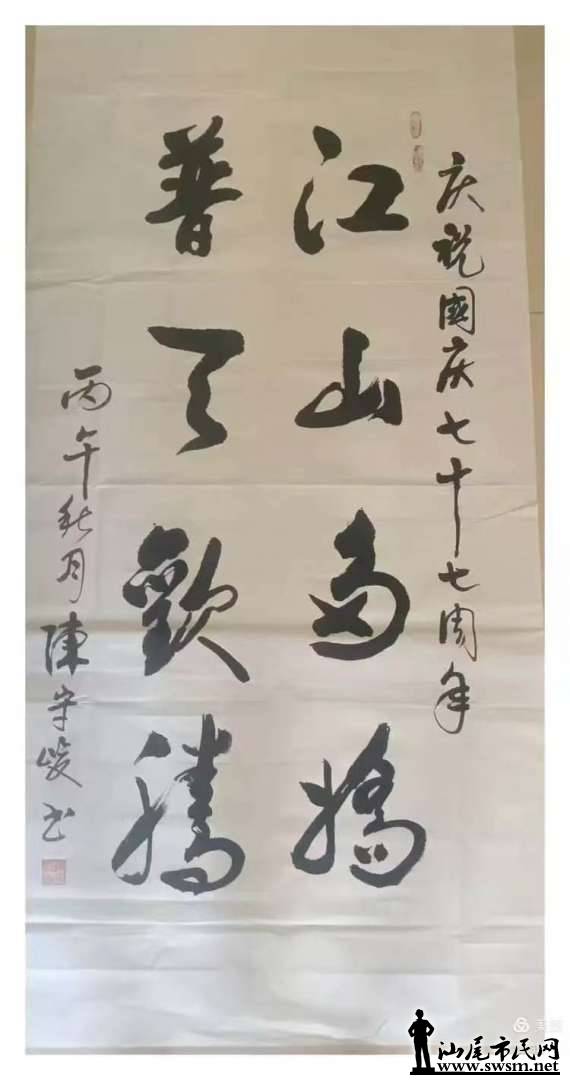 庆祝國庆七十七周年
江山多嬌
普天歡騰
丙午秋月陳守峻书
汕尾市民网
www.swsm.net